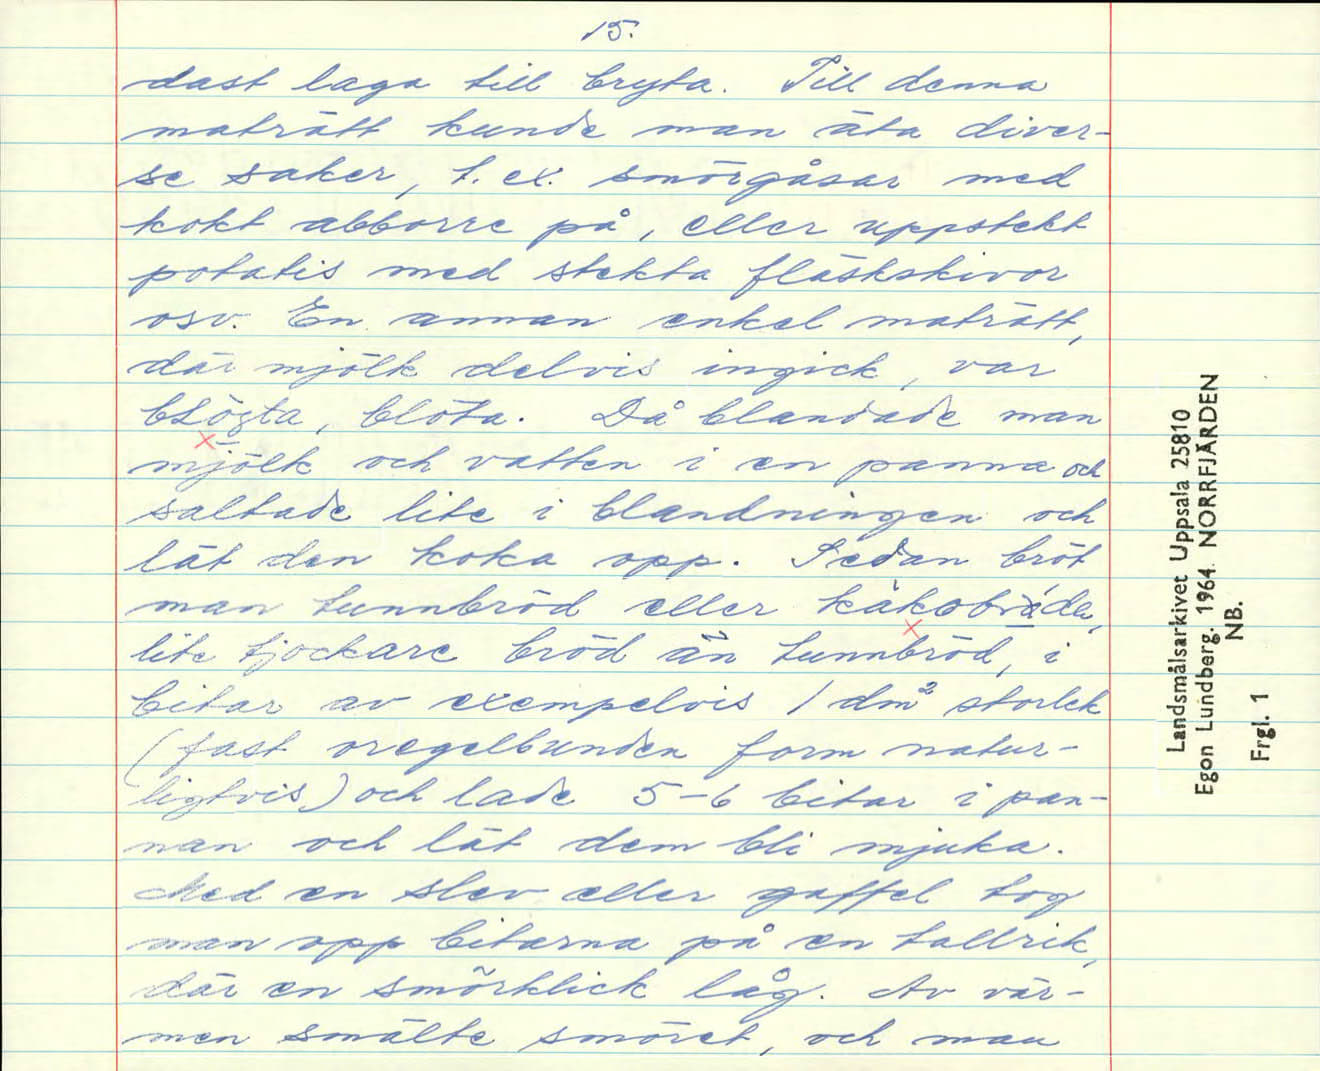 15.
dast laga till bryta. Till denna
maträtt kunde man äta diver-
se saker, t. ex. smörgåsar med
kokt abborre på, eller uppstekt
potatis med stekta fläskskivor
osv. En annan enkel maträtt,
där mjölk delvis ingick, var
blöta. Då blandade man
mjölk och vatten i en panna och
saltade lite i blandningen och
lät den koka opp. Sedan bröt
man tunnbröd eller
lite tjockare bröd än tunnbröd, i
bitar av exempelvis 1 dm² storlek
(fast oregelbunden form natur-
ligtvis) och lade 5-6 bitar i pan-
nan och lät dem bli mjuka.
Med en slev eller gaffel tog
man opp bitarna på en tallrik,
där en smörklick låg. Av vär-
men smälte smöret, och man
Landsmålsarkivet Uppsala 25810
Egon Lundberg. 1964. NORRFJÄRDEN
NB.
Frgl. 1